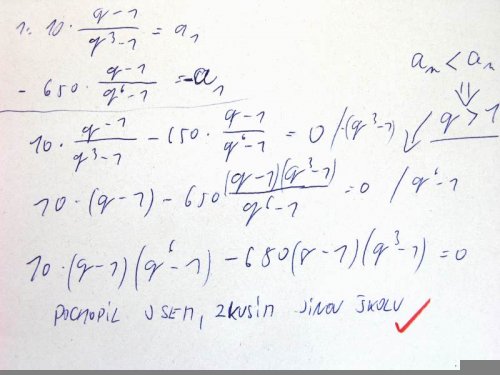 1. 10 · (q-1)/(q³-1) = a₁
- 650 · (q-1)/(q⁶-1) = -a₁
aₙ < aₙ
⇓
q > 1
10 · (q-1)/(q³-1) - 650 · (q-1)/(q⁶-1) = 0 /·(q³-1)
10 · (q-1) - 650 (q-1)(q³-1)/(q⁶-1) = 0 / q⁶-1
10 · (q-1)(q⁶-1) - 650(q-1)(q³-1) = 0
POCHOPIL JSEM, ZKUSÍM JINOU ŠKOLU ✓